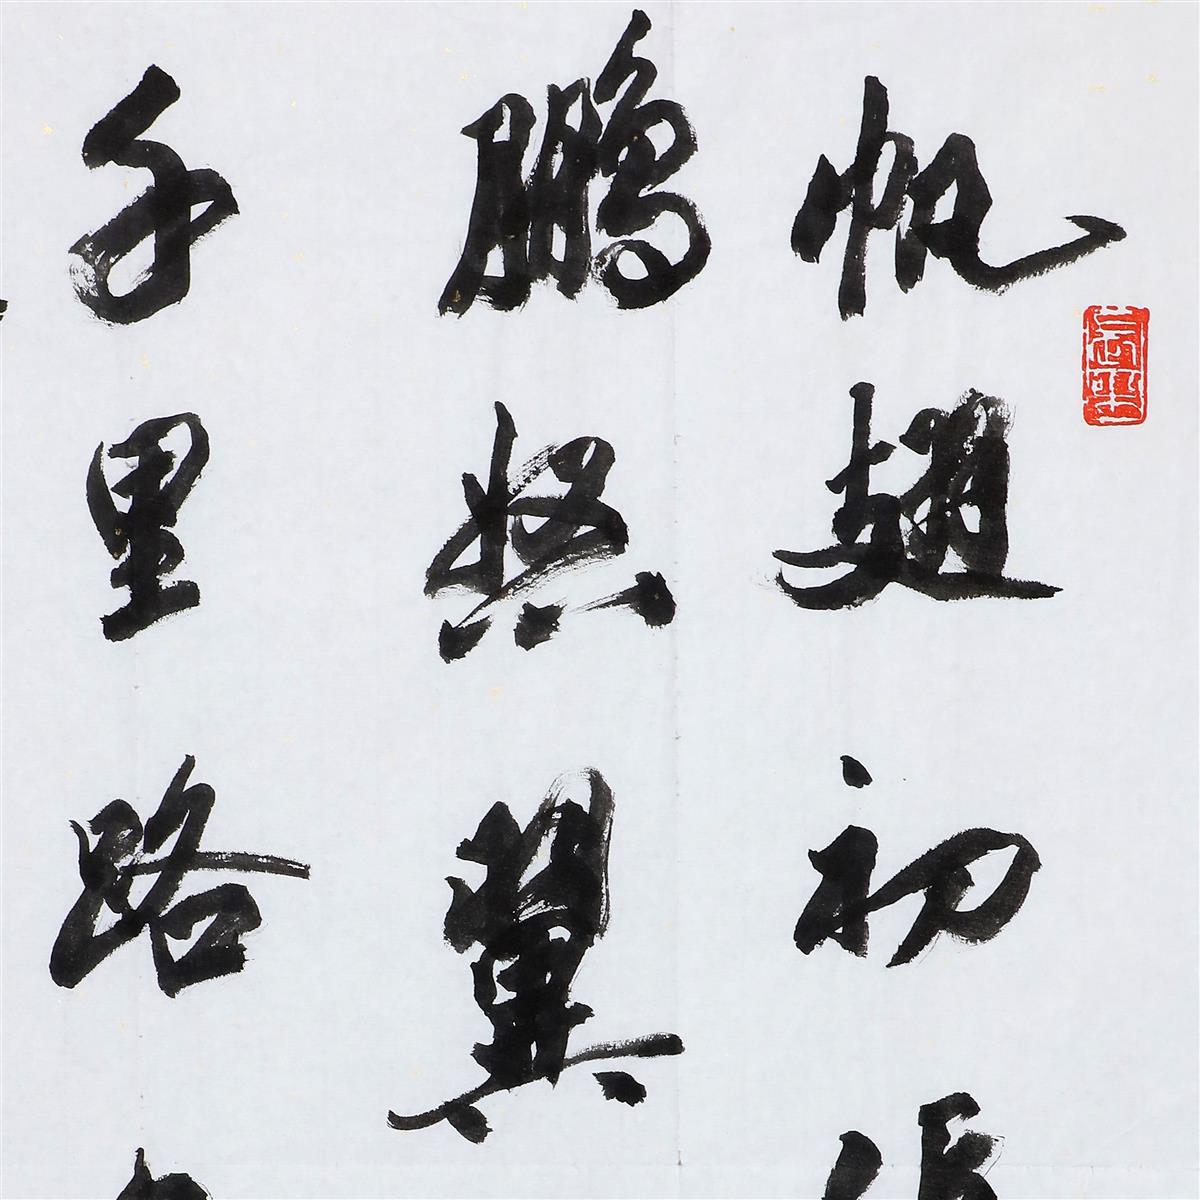 帆翅初张
鹏怒翼
千里路